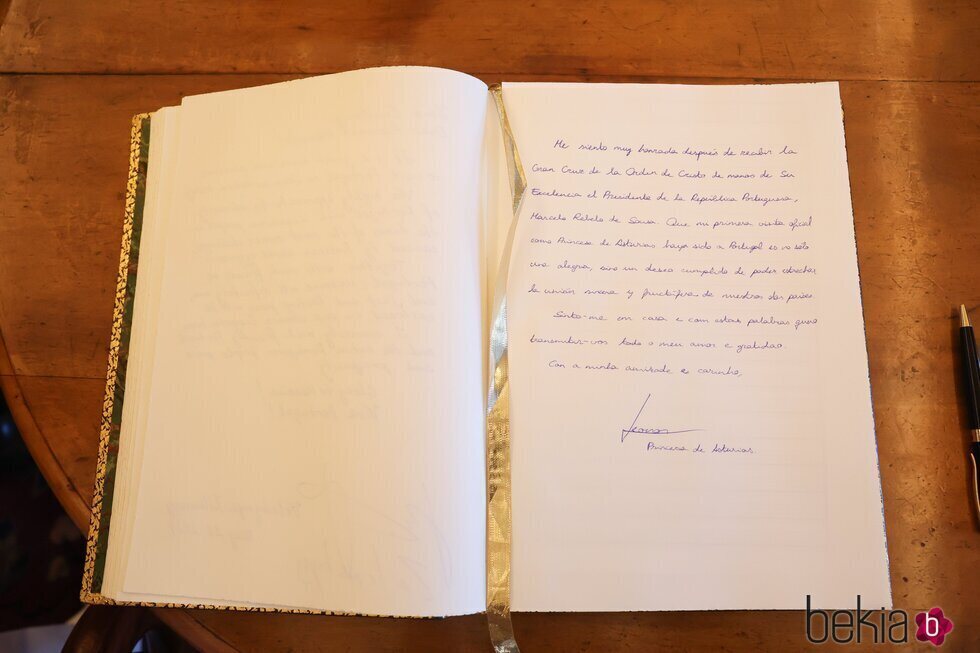 Me siento muy honrada después de recibir la
Gran Cruz de la Orden de Cristo de manos de Su
Excelencia el Presidente de la República Portuguesa,
Marcelo Rebelo de Sousa. Que mi primera visita oficial
como Princesa de Asturias haya sido a Portugal es no sólo
una alegría, sino un deseo cumplido de poder estrechar
la unión sincera y fructífera de nuestros dos países.
Sinto-me em casa e com estas palavras quero
transmitir-vos todo o meu amor e gratidao.
Con a minha amizade e carinho,
Leonor
Princesa de Asturias
bekia b